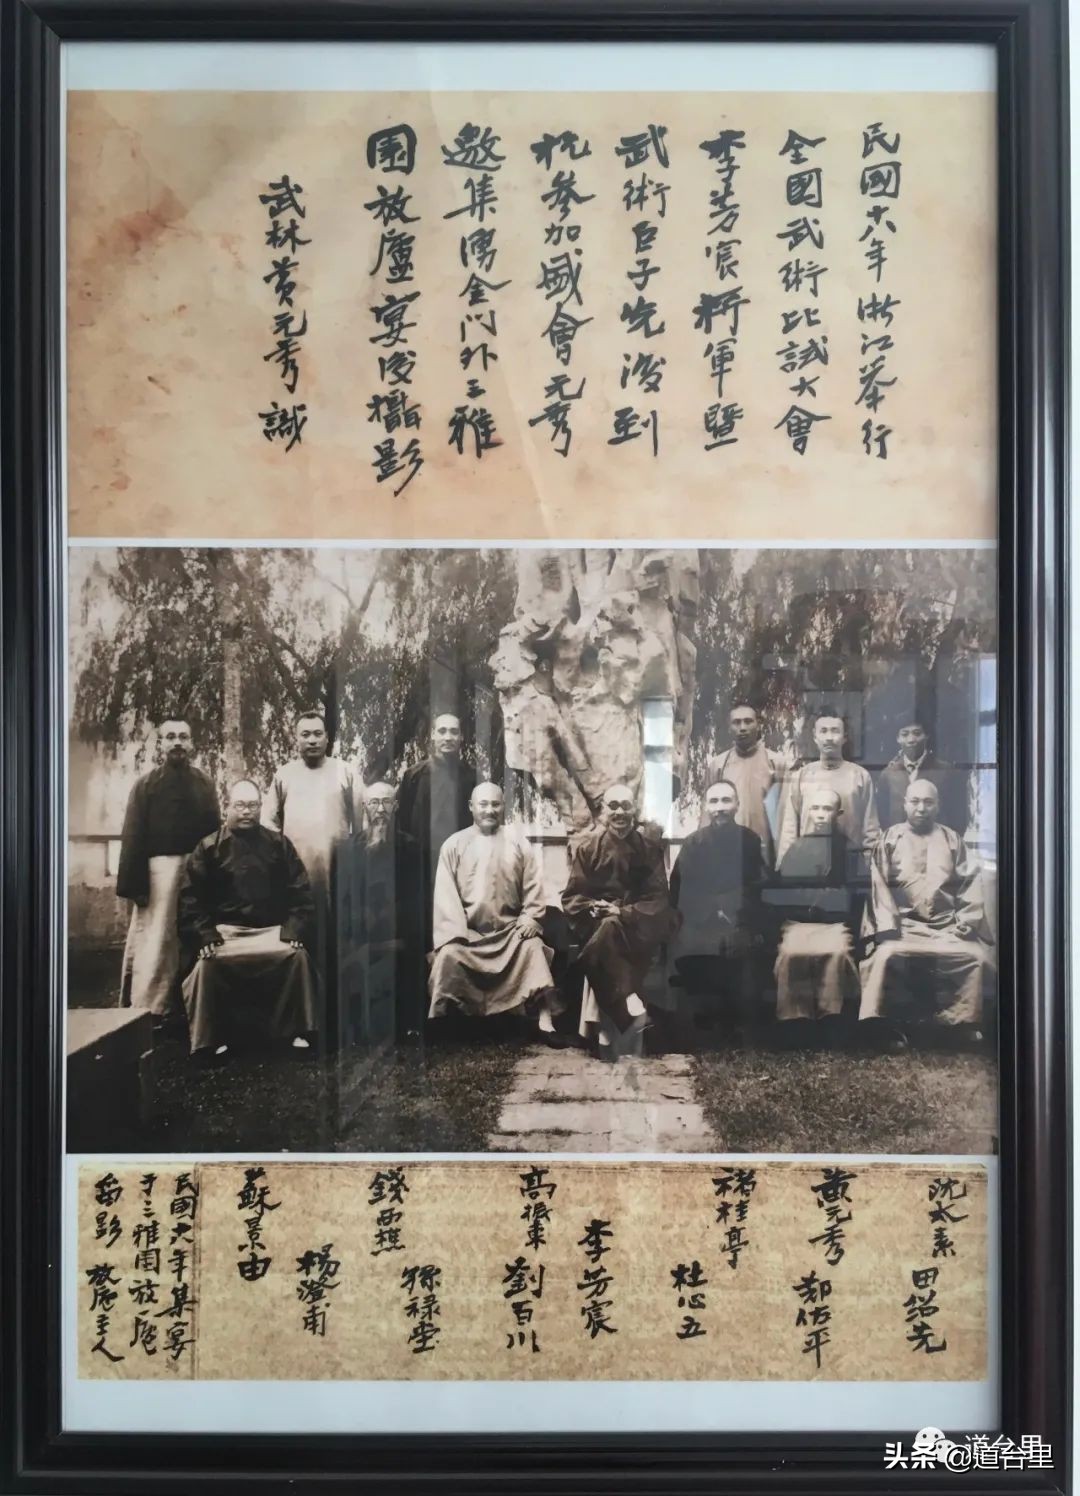 民國十八年浙江举行
全國武術比試大會
李芳宸将軍暨
武術巨子先後到
杭參加盛會元秀
邀集湧金门外三雅
園放廬宴後攝影
武林黄元秀識
沈水素
田绍先
黄元秀
鄭佐平
褚桂亭
杜心五
李芳宸
高振東
劉百川
錢西樵
孫禄堂
楊澄甫
蘇景由
民國十八年集宴
于三雅園放廬
留影 放廬主人
道台里
头条 @道台里